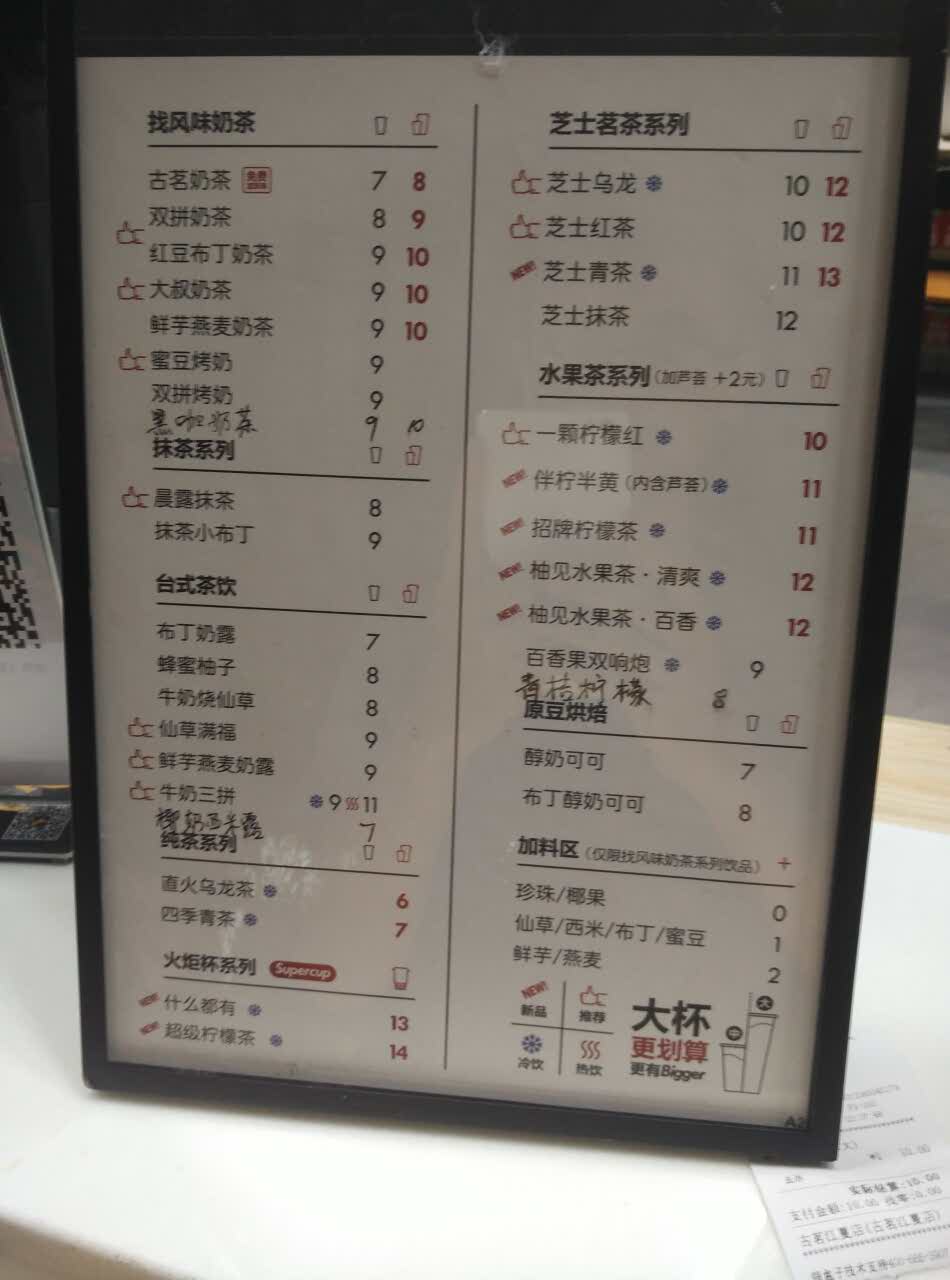 找风味奶茶
古茗奶茶 免费 7 8
双拼奶茶 8 9
红豆布丁奶茶 9 10
大叔奶茶 9 10
鲜芋燕麦奶茶 9 10
蜜豆烤奶 9
双拼烤奶 9
黑咖奶茶 9 10
抹茶系列
晨露抹茶 8
抹茶小布丁 9
台式茶饮
布丁奶露 7
蜂蜜柚子 8
牛奶烧仙草 8
仙草满福 9
鲜芋燕麦奶露 9
牛奶三拼 9 11
椰奶西米露 7
纯茶系列
直火乌龙茶 6
四季青茶 7
火炬杯系列 Supercup
NEW! 什么都有 13
NEW! 超级柠檬茶 14
芝士茗茶系列
芝士乌龙 10 12
芝士红茶 10 12
NEW! 芝士青茶 11 13
芝士抹茶 12
水果茶系列(加芦荟 +2元)
一颗柠檬红 10
NEW! 伴柠半黄(内含芦荟) 11
NEW! 招牌柠檬茶 11
NEW! 柚见水果茶·清爽 12
NEW! 柚见水果茶·百香 12
百香果双响炮 9
青桔柠檬 8
原豆烘焙
醇奶可可 7
布丁醇奶可可 8
加料区(仅限找风味奶茶系列饮品) +
珍珠/椰果 0
仙草/西米/布丁/蜜豆 1
鲜芋/燕麦 2
NEW! 新品 推荐
冷饮 热饮
大杯
更划算
更有Bigger
中 大
10.00
实际结算:10.00
支付金额:10.00 找零:0.00
古茗江夏店(古茗江夏店)